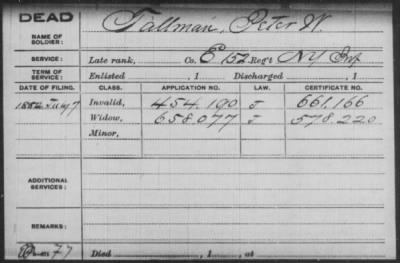 DEAD
NAME OF SOLDIER: Tallman, Peter W.
SERVICE: Late rank, Co. E 152 Reg't NY Inf
TERM OF SERVICE: Enlisted , 1 Discharged , 1
DATE OF FILING. CLASS. APPLICATION NO. LAW. CERTIFICATE NO.
1882 July 7 Invalid, 454.190 J 661.166
Widow, 658.077 J 578.220
Minor,
ADDITIONAL SERVICES:
REMARKS:
77 Died , 1 , at